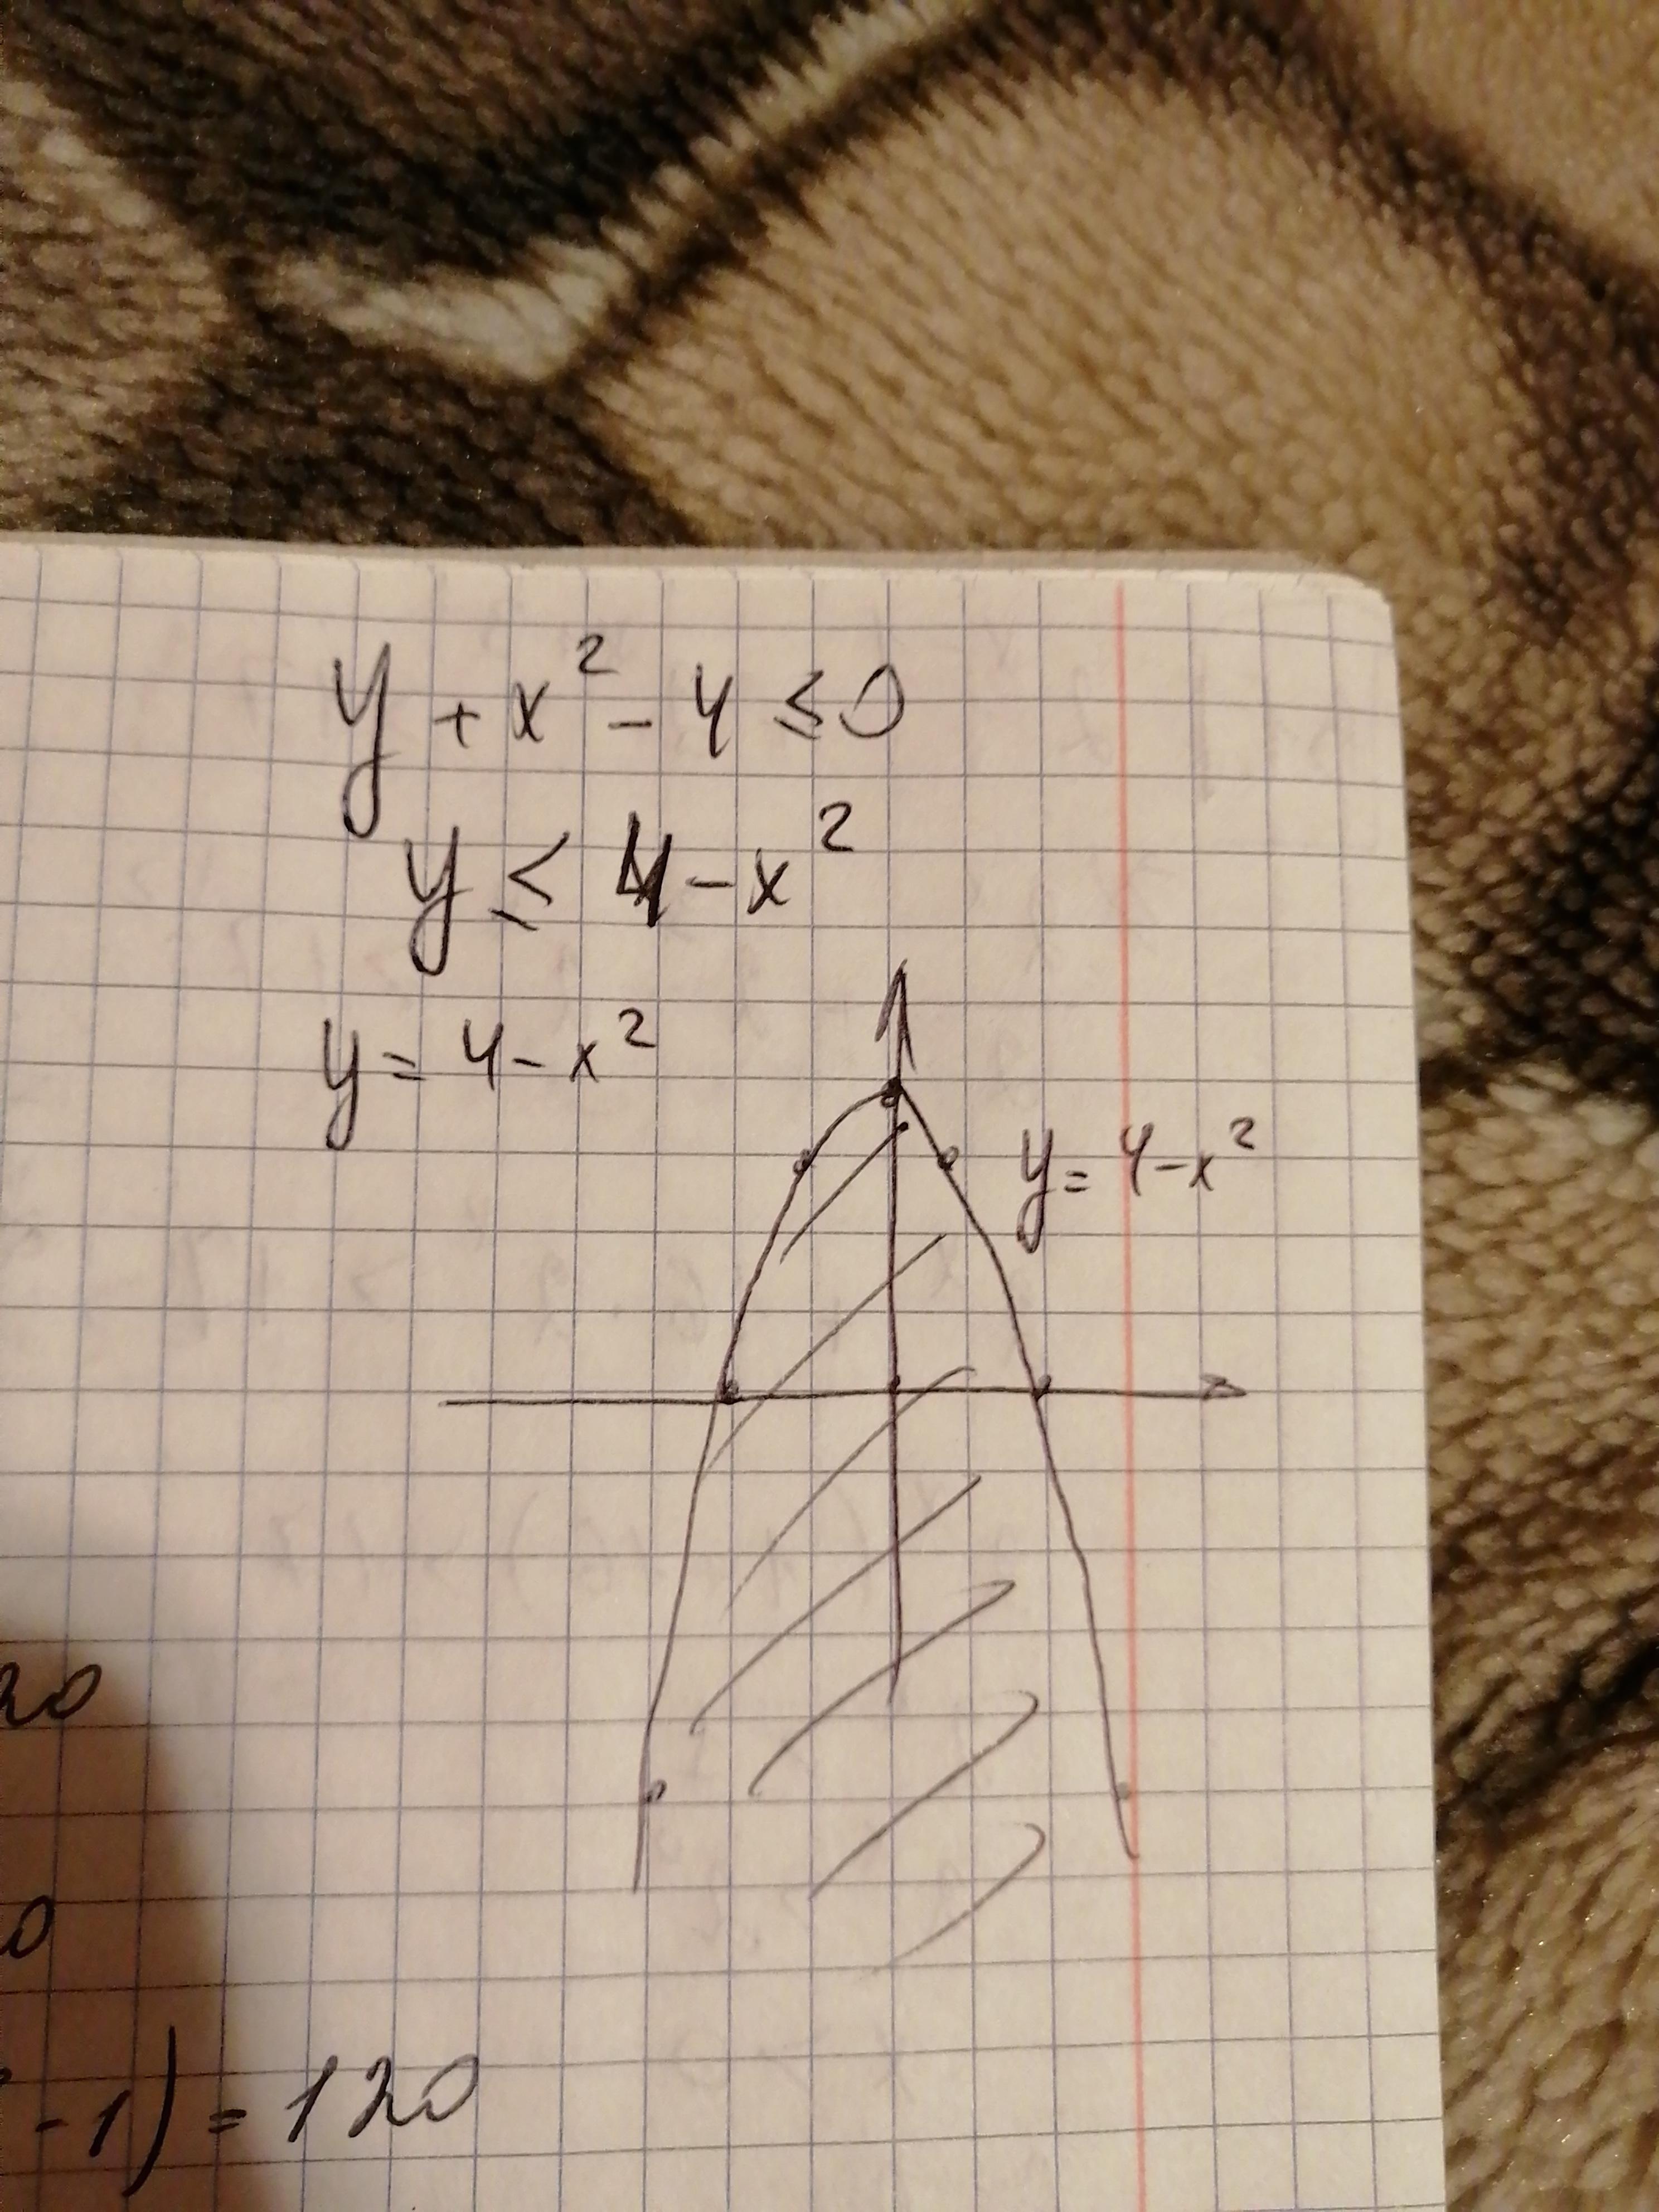 y + x² - 4 ≤ 0
y ≤ 4 - x²
y = 4 - x²
y = 4 - x²
20
0
-1) = 120